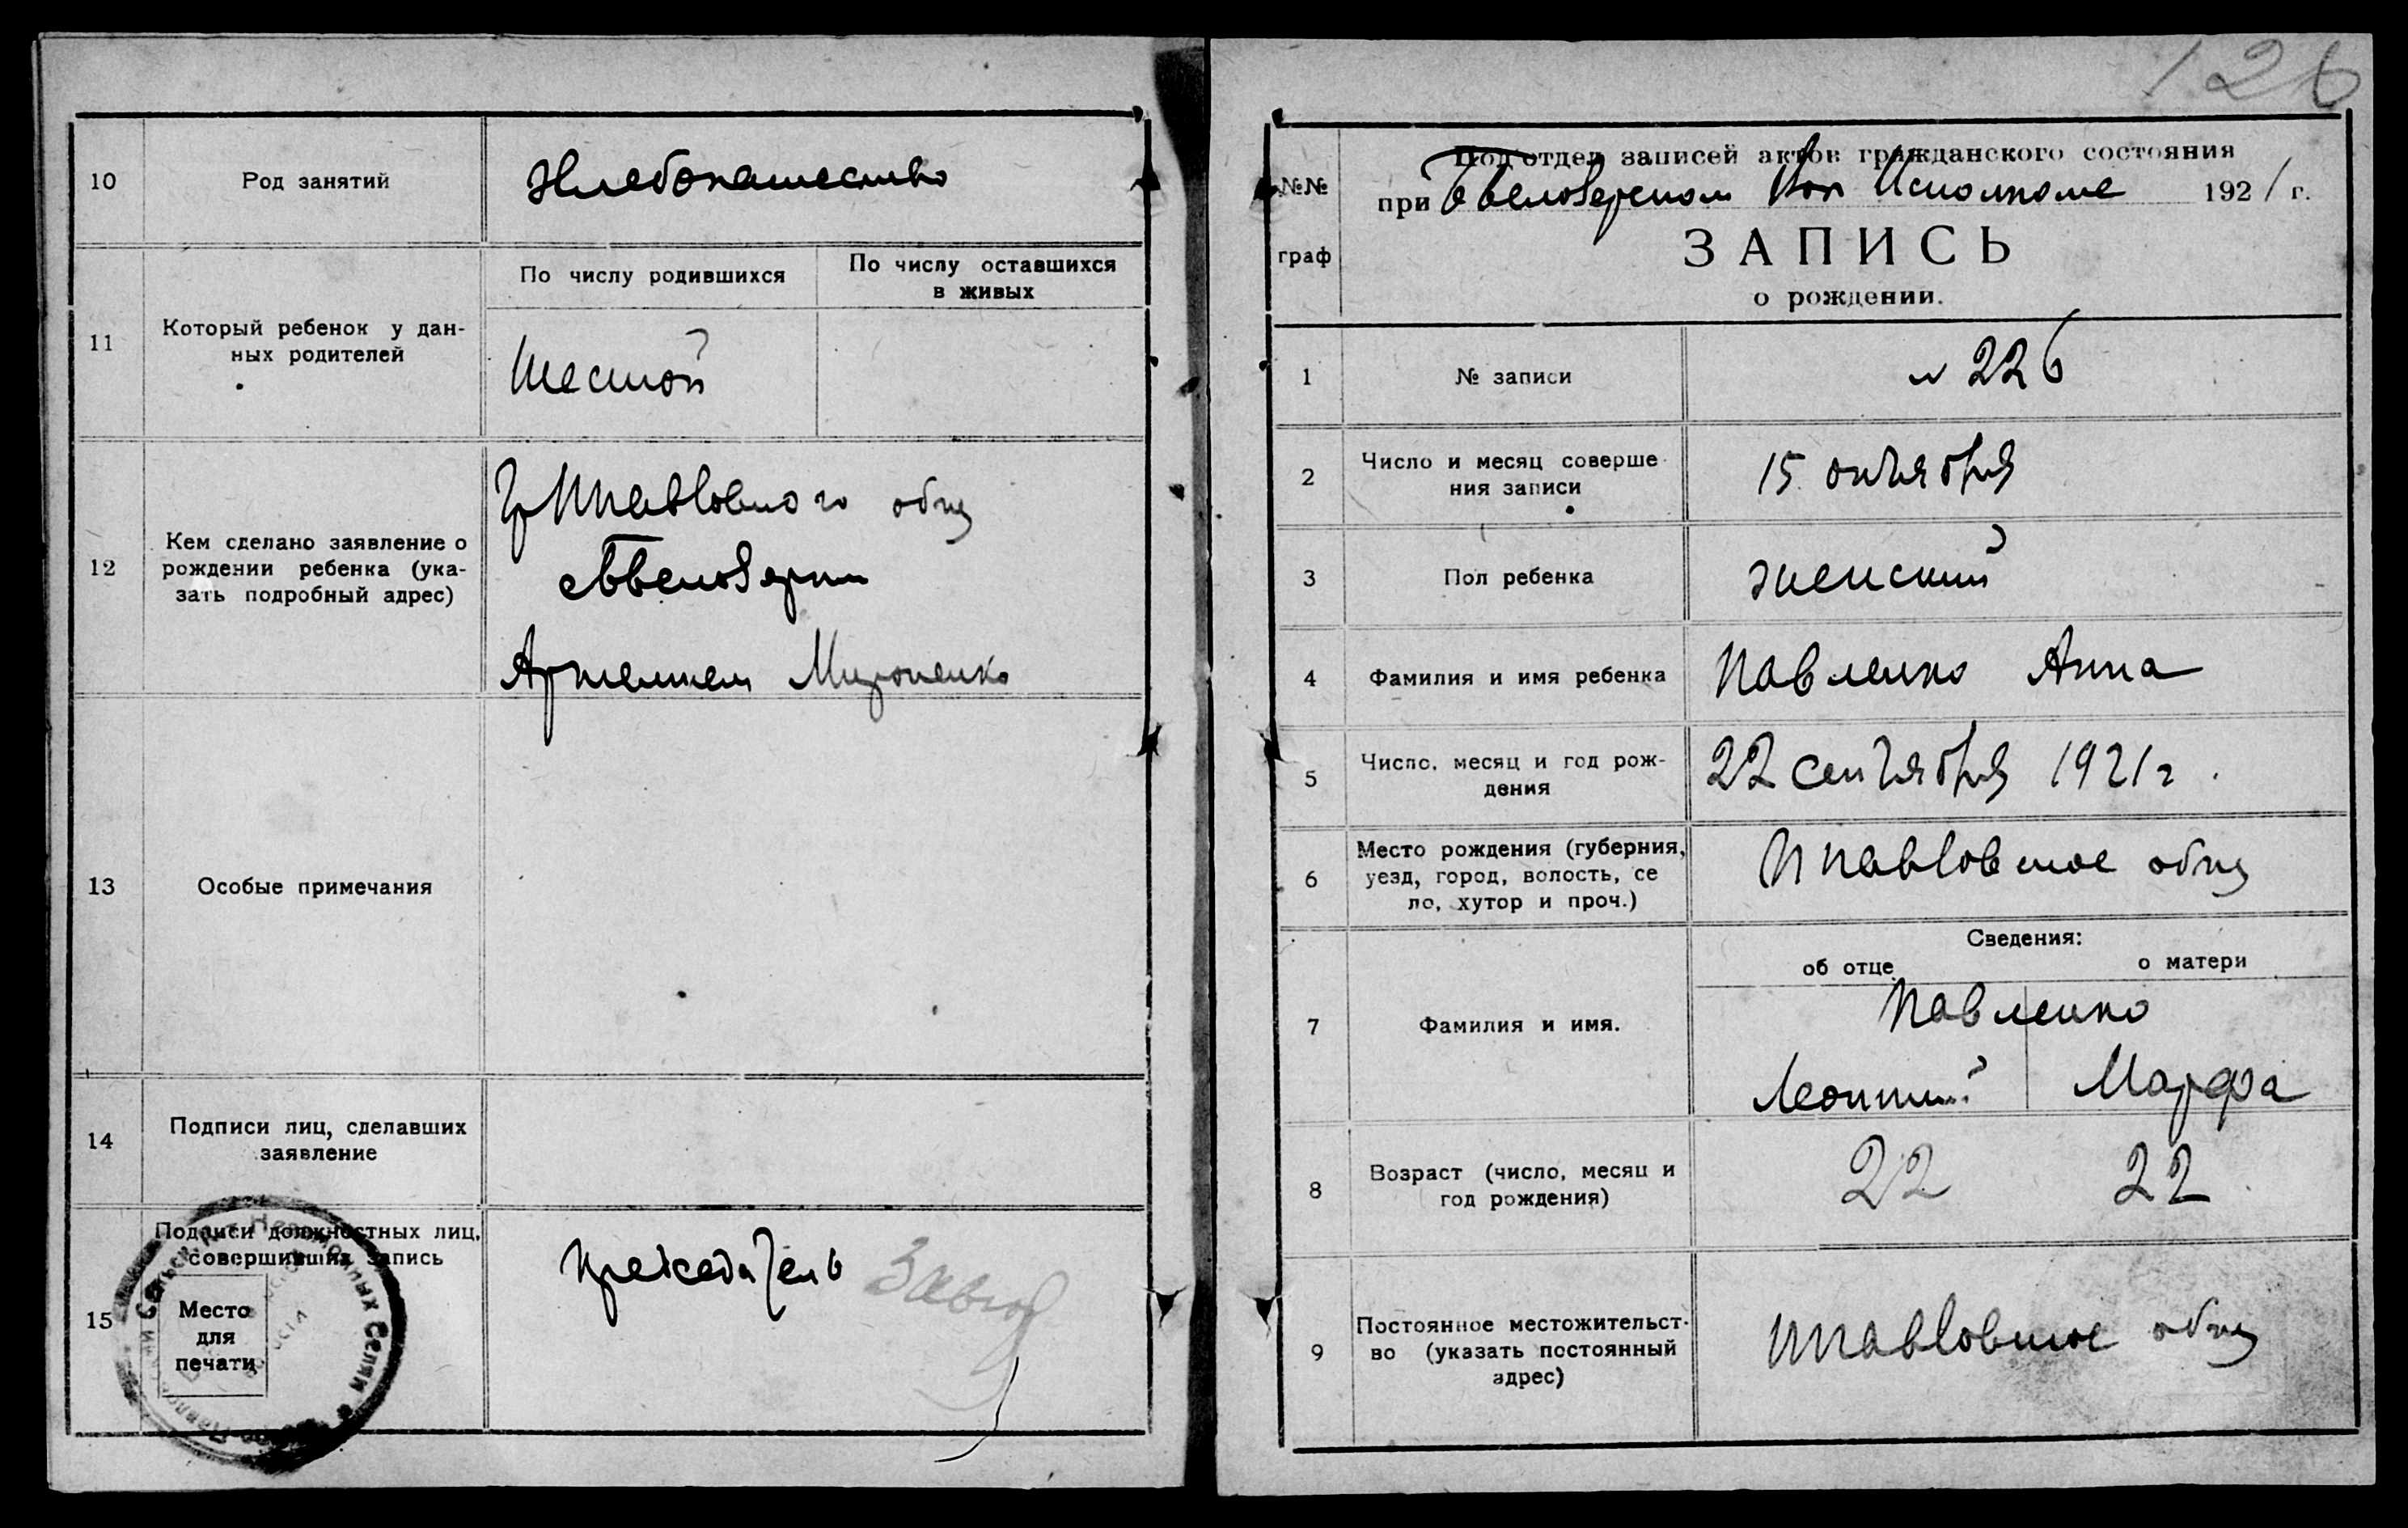 10
Род занятий
Хлебопашество
11
Который ребенок у дан-
ных родителей
По числу родившихся
По числу оставшихся
в живых
Шестой
12
Кем сделано заявление о
рождении ребенка (ука-
зать подробный адрес)
общ
Мироненко
13
Особые примечания
14
Подписи лиц, сделавших
заявление
15
Подписи должностных лиц,
совершивших запись
Место
для
печати
Незаможных Селян
председатель
126
№№
граф
Подотдел записей актов гражданского состояния
при Исполкоме 1921 г.
ЗАПИСЬ
о рождении.
1
№ записи
№ 226
2
Число и месяц соверше-
ния записи
15 октября
3
Пол ребенка
женский
4
Фамилия и имя ребенка
Павленко Анна
5
Число, месяц и год рож-
дения
22 сентября 1921 г.
6
Место рождения (губерния,
уезд, город, волость, се
ло, хутор и проч.)
общ
Сведения:
об отце
о матери
7
Фамилия и имя.
Павленко
Леонтий
Марфа
8
Возраст (число, месяц и
год рождения)
22
22
9
Постоянное местожительст-
во (указать постоянный
адрес)
общ